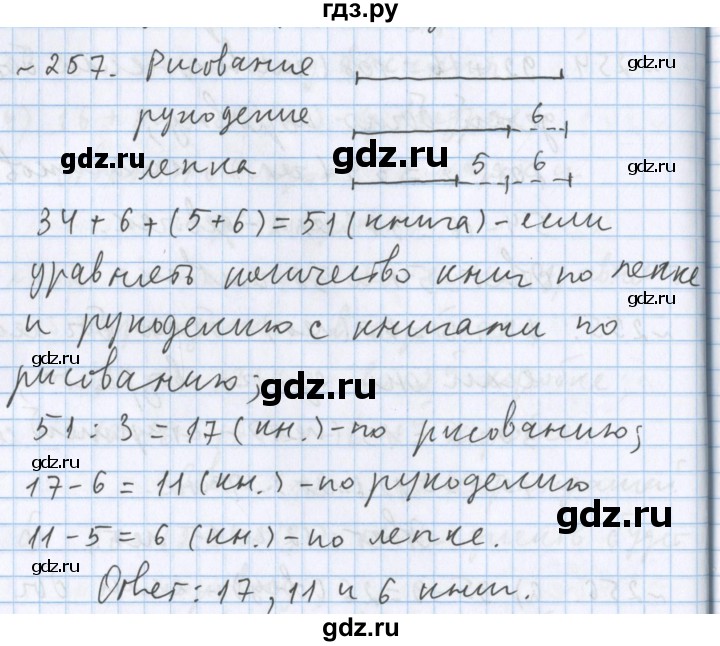 гдз.ру
~ 257. Рисование
рукоделие 6
лепка 5 6
34 + 6 + (5 + 6) = 51 (книга) – если
уравнять количество книг по лепке
и рукоделию с книгами по
рисованию;
51 : 3 = 17 (кн.) – по рисованию;
17 – 6 = 11 (кн.) – по рукоделию
11 – 5 = 6 (кн.) – по лепке.
Ответ: 17, 11 и 6 книг.
gdz.ru
gdz.ru
gdz.ru
gdz.ru
gdz.ru
gdz.ru
gdz.ru
gdz.ru
gdz.ru
gdz.ru
gdz.ru
gdz.ru
gdz.ru